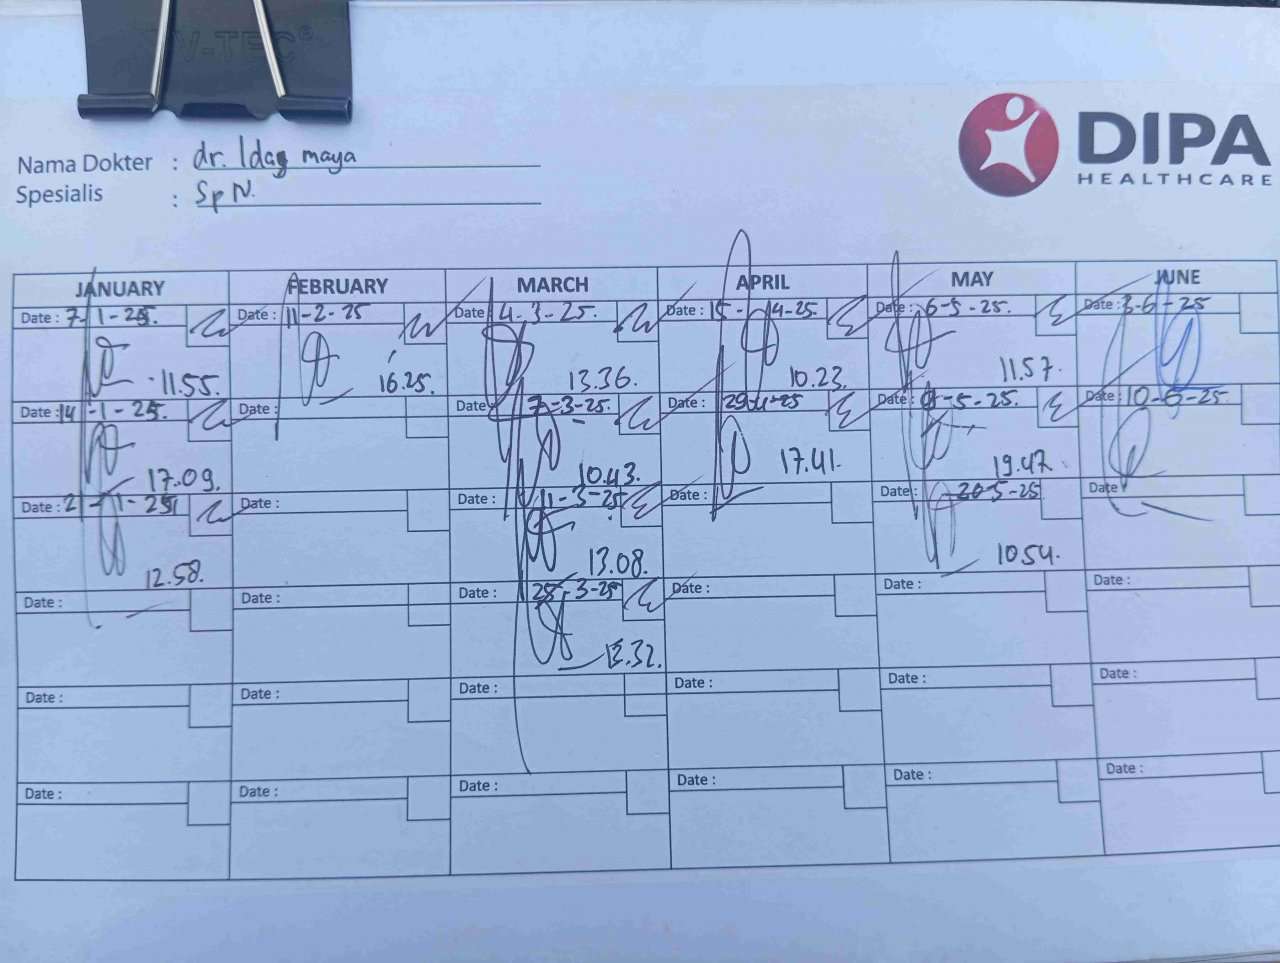 Nama Dokter : dr. Idag maya
Spesialis : Sp N.
DIPA
HEALTHCARE
JANUARY FEBRUARY MARCH APRIL MAY JUNE
Date : 7-1-25. Date : 11-2-25 Date : 4-3-25. Date : 15-4-25. Date : 6-5-25. Date : 3-6-25
11.55. 16.25. 13.36. 10.23. 11.57.
Date : 14-1-25. Date : Date : 7-3-25. Date : 29-4-25 Date : -5-25. Date : 10-6-25
17.09. 10.43. 17.41. 19.47.
Date : 21-1-25 Date : Date : 11-3-25 Date : Date : 20-5-25 Date :
12.58. 13.08. 10.54.
Date : Date : Date : 25-3-25 Date : Date : Date :
.32.
Date : Date : Date : Date : Date : Date :
Date : Date : Date : Date : Date : Date :